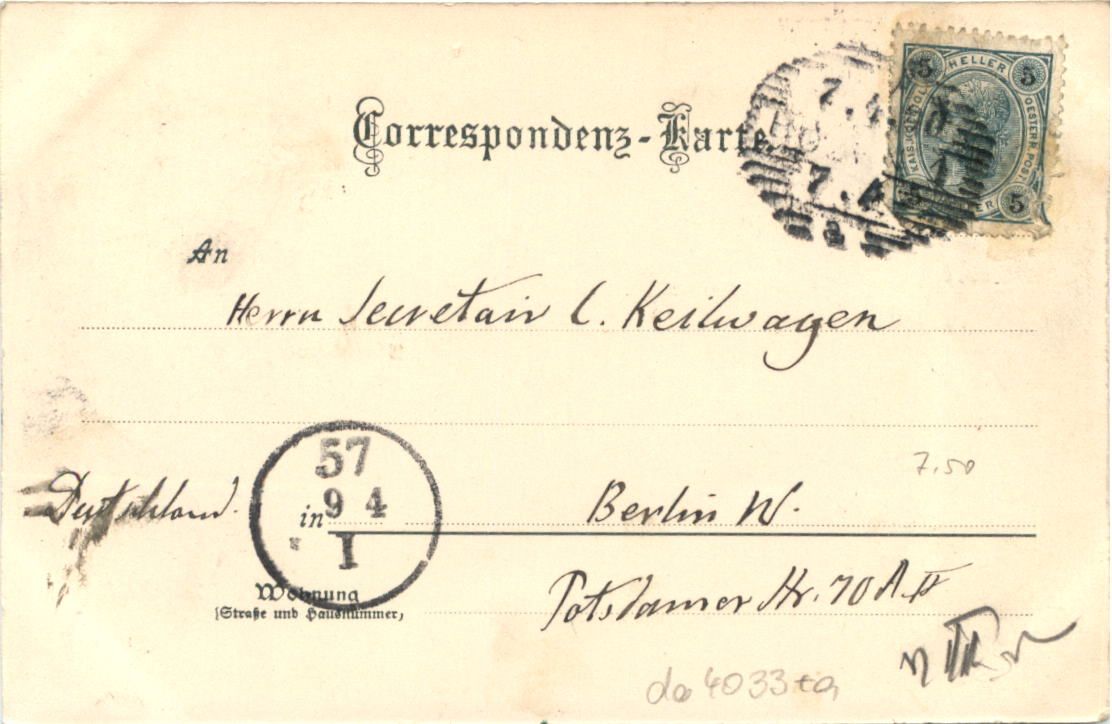 Correspondenz-Karte.
5 HELLER 5
KAIS. KÖNIGL. OESTERR. POST
5
7.4
7.4
a
An
Herrn Secretair C. Keilwagen
7.50
Deutschland.
57
9 4
I
in Berlin W.
Wohnung
(Straße und Hausnummer)
Potsdamer Str. 70 A II
do 4033